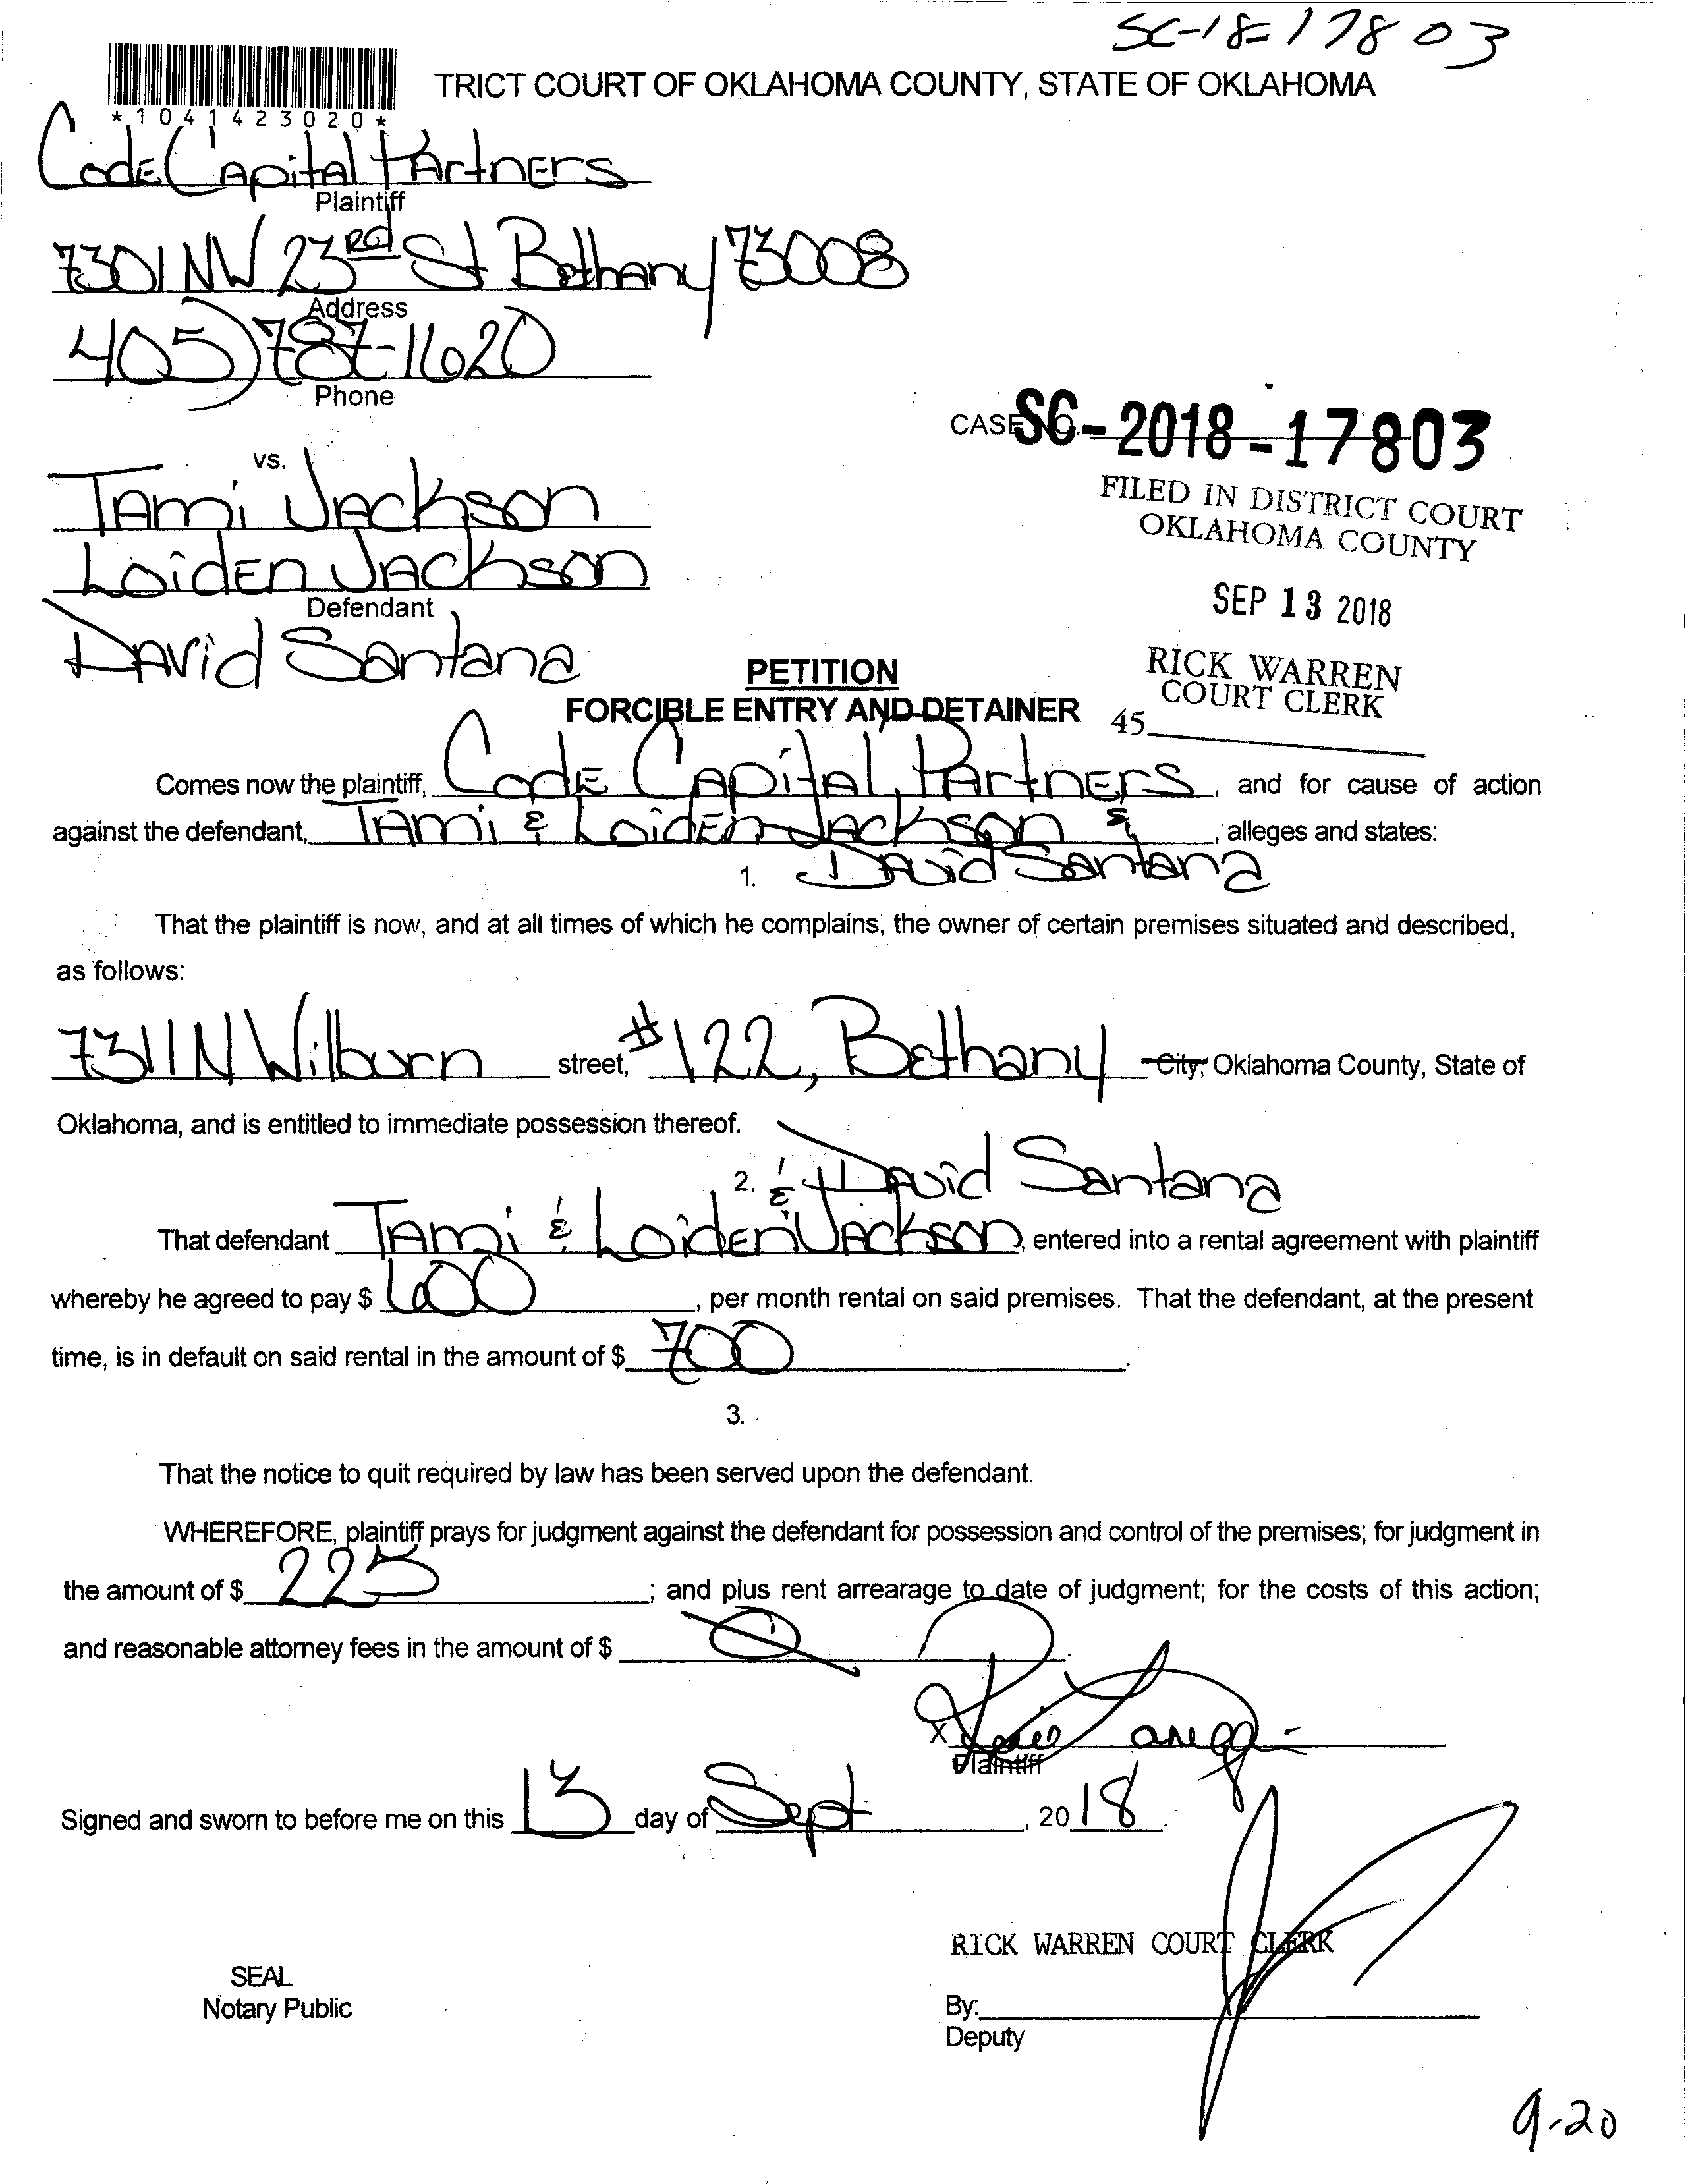 SC-18-17803
TRICT COURT OF OKLAHOMA COUNTY, STATE OF OKLAHOMA
*1041423020*
Code Capital Partners
Plaintiff
7301 NW 23rd St Bethany 73008
Address
405) 787-1620
Phone
CASE NO. SC-2018-17803
vs.
FILED IN DISTRICT COURT
OKLAHOMA COUNTY
Tami Jackson
Loiden Jackson
SEP 13 2018
Defendant
David Santana
RICK WARREN
COURT CLERK
45
PETITION
FORCIBLE ENTRY AND DETAINER
Comes now the plaintiff, Code Capital Partners, and for cause of action
against the defendant, Tami & Loiden Jackson &, alleges and states:
1. David Santana
That the plaintiff is now, and at all times of which he complains, the owner of certain premises situated and described,
as follows:
7311 N Wilburn street, #122, Bethany City, Oklahoma County, State of
Oklahoma, and is entitled to immediate possession thereof.
2. & David Santana
That defendant Tami & Loiden Jackson, entered into a rental agreement with plaintiff
whereby he agreed to pay $ 600, per month rental on said premises. That the defendant, at the present
time, is in default on said rental in the amount of $ 700.
3.
That the notice to quit required by law has been served upon the defendant.
WHEREFORE, plaintiff prays for judgment against the defendant for possession and control of the premises; for judgment in
the amount of $ 225; and plus rent arrearage to date of judgment; for the costs of this action;
and reasonable attorney fees in the amount of $ 0.
X
Plaintiff
Signed and sworn to before me on this 13 day of Sept, 2018.
RICK WARREN COURT CLERK
SEAL
Notary Public
By:
Deputy
9-20